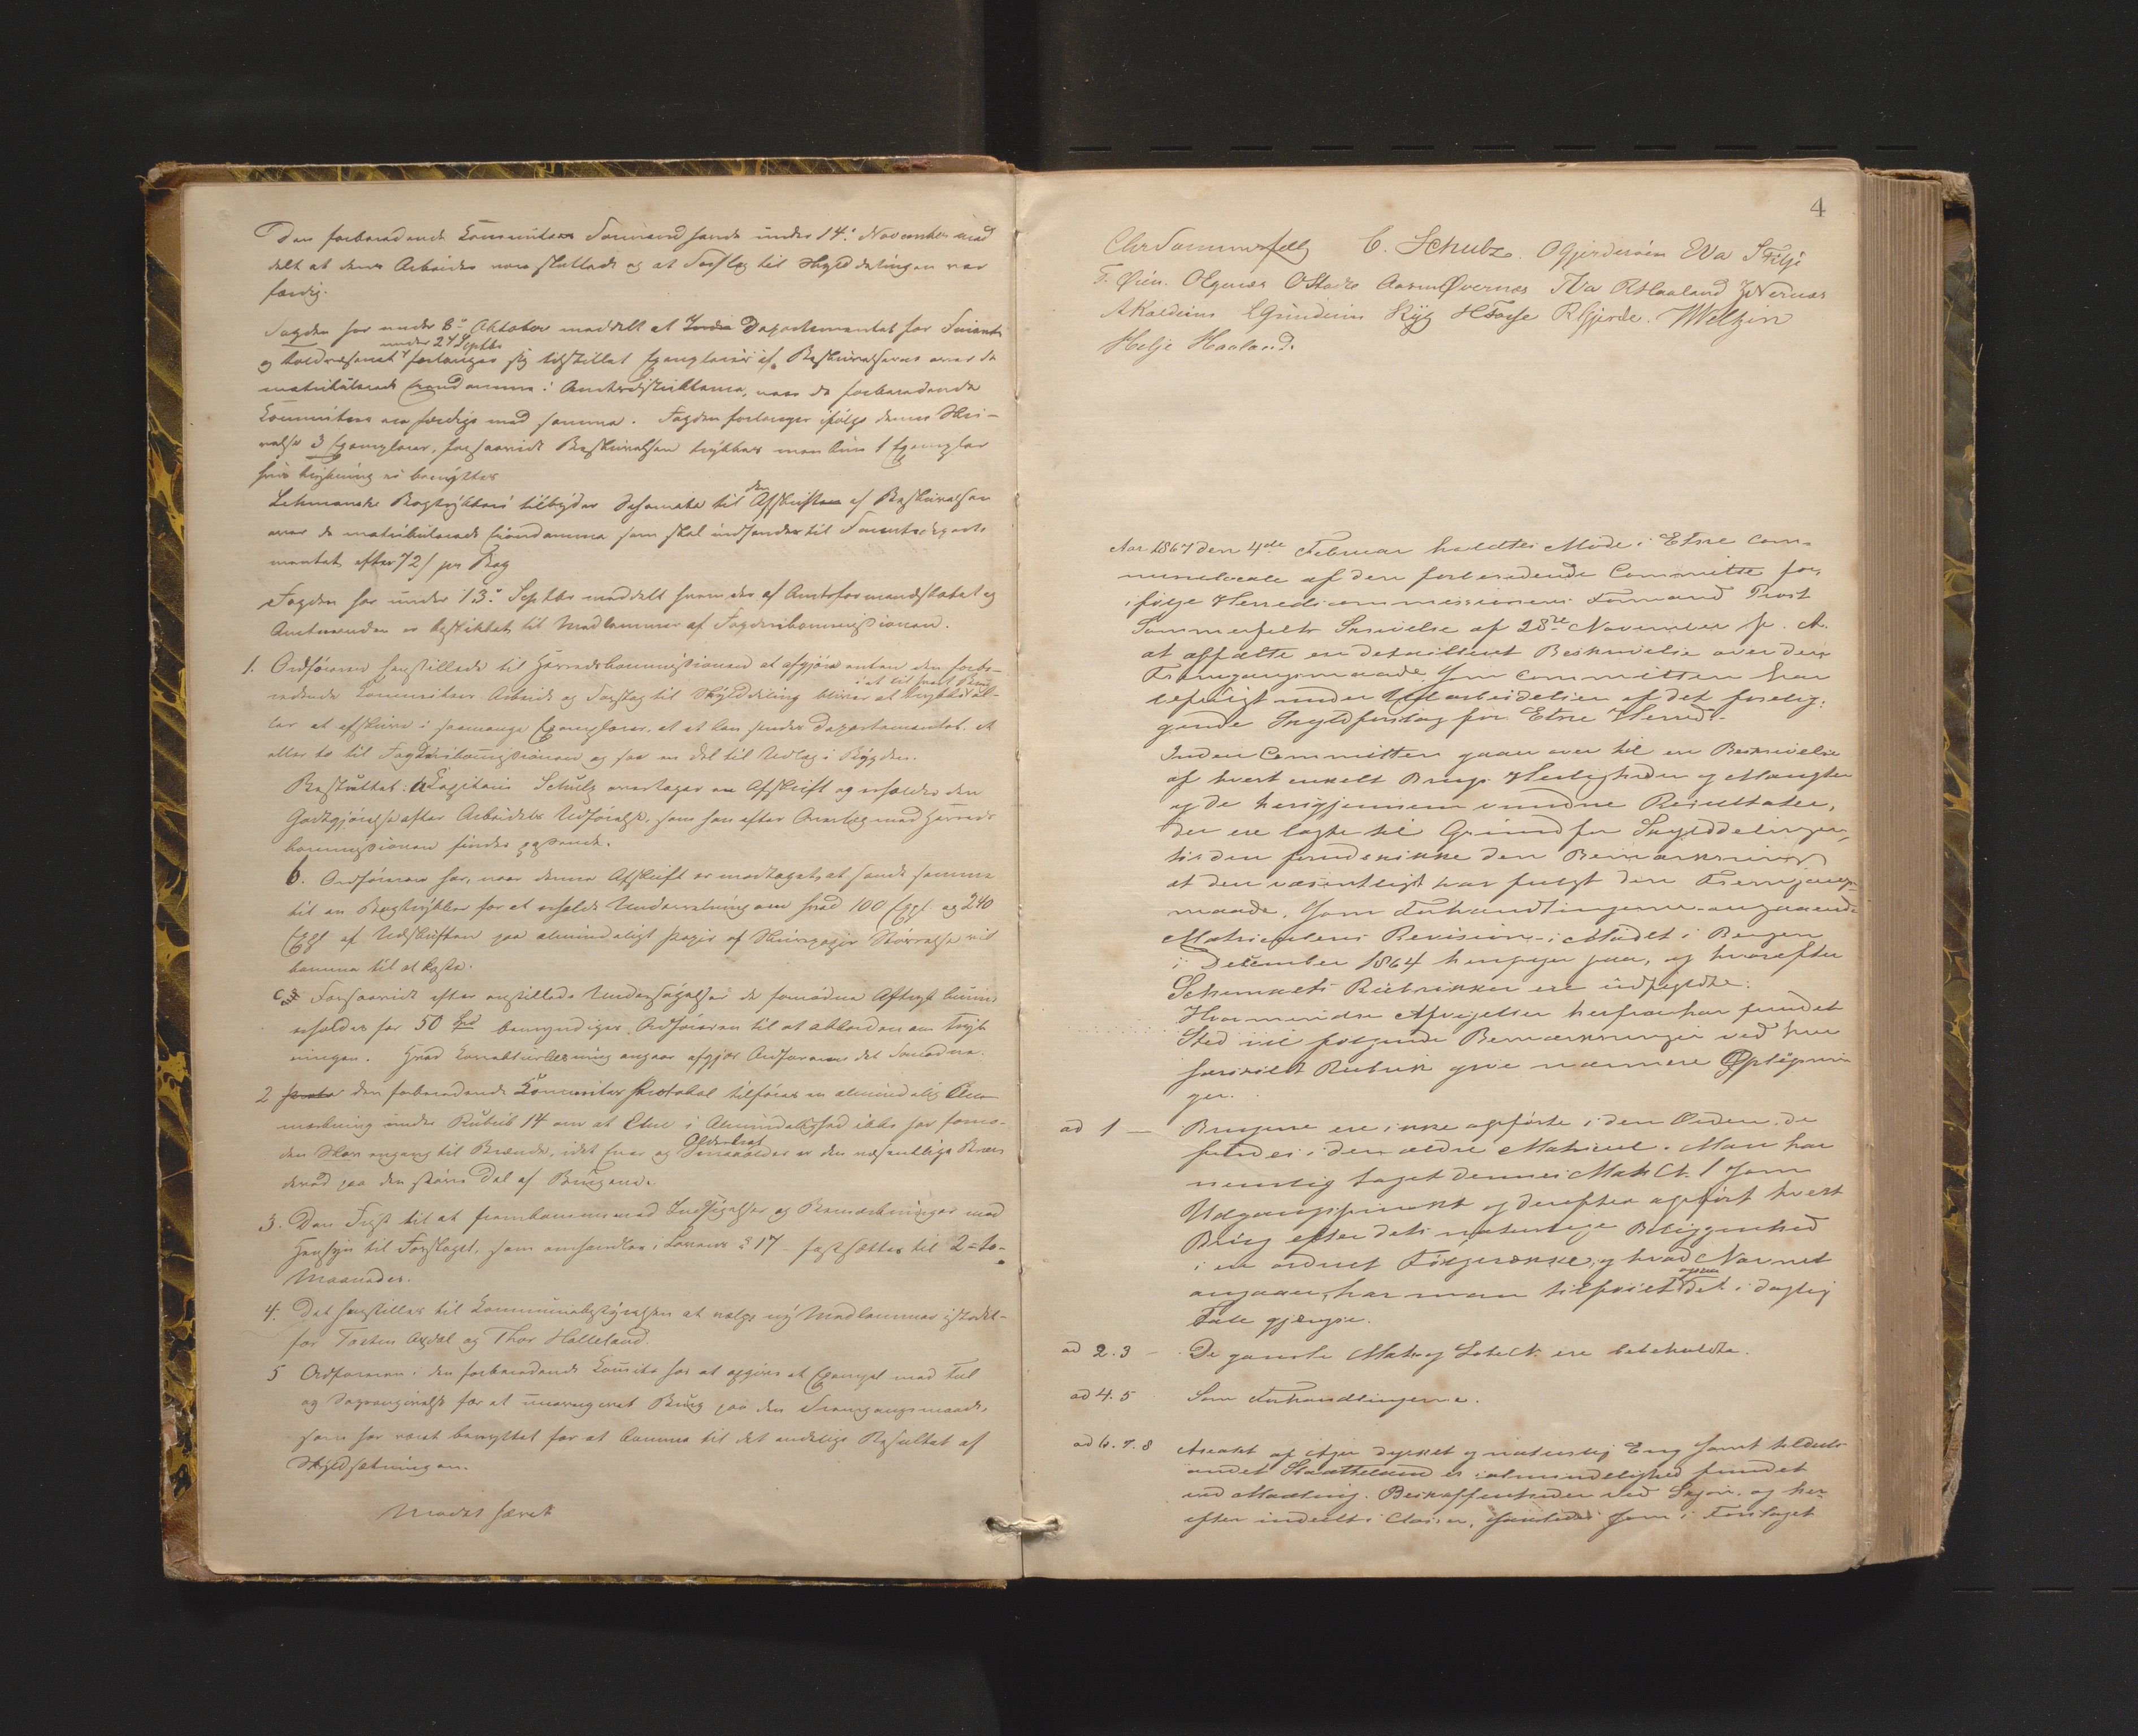 Den forberedende Kommitees Formand havde under 14: November med
delt at dens Arbeide var sluttede og at Forslag til Skylddelingen var
færdig.
Fogden har under 8de Oktober meddelt at Departementet for Finants
under 27 Septbr
og Toldvæsenet forlanger sig tilstillet Exemplarer af Beskrivelserne over de
matrikulerede Eiendomme i Amtsdistrikterne, naar de forberedende
Kommiteer ere færdige med samme. Fogden forlanger ifølge denne Skri-
velse 3 Exemplarer, forsaavidt Beskrivelsen trykkes men kun 1 Exemplar
hvis trykning ei benyttes
Lehmanske Bogtrykkeri tilbyder Schemata til den Afskrift af Beskrivelsen
over de matrikulerede Eiendomme som skal indsendes til Finantsdeparte
mentet efter 72 / pr Bog
Fogden har under 13: Septbr meddelt hvem der af Amtsformandskabet og
Amtmanden er beskikket til Medlemmer af Fogderikommissionen.
1. Ordføreren henstillede til Herredskommissionen at afgjøre enten den forbe-
redende Kommitees Arbeide og Forslag til Skylddeling bliver at trykkes el-
ler at afskrive i saamange Exemplarer, at et kan sendes Departementet, et
eller to til Fogderikommissionen og saa en del til Udlæg i Bygden.
Besluttet: a Capitain Schulz overtager en Afskrift og erholder den
Godtgjørelse efter Arbeidets Udførelse, som han efter Overlæg med Herreds
kommissionen findes passende.
b. Ordføreren har, naar denne Afskrift er modtaget, at sende samme
til en Bogtrykker for at erholde Underretning om hvad 100 Expl. og 240
Expl af Udskriften paa almindeligt Papir af Skrivpapir Størrelse vil
komme til at koste.
c Forsaavidt efter anstillede Undersøgelser de fornødne Aftryk kunne
erholdes for 50 Spd bemyndiges Ordføreren til at akkordere om Tryk
ningen. Hvad Korrekturlæsning angaar afgjør Ordføreren det Fornødne.
2 den forberedende Komitees Protokol tilføres en almindelig Anm
mærkning under Rubrik 14 om at Etne i Almindelighed ikke har fornø-
den Skov engang til Brænde, idet Euer og Olderkrat er den væsentlige Bræn
deved paa den større Del af Brugene.
3. Den Frist til at fremkomme med Indsigelser og Bemærkninger med
Hensyn til Forslaget, som omhandles i Lovens § 17 fastsættes til 2 = to -
Maaneder.
4. Det henstilles til Kommunebestyrelsen at vælge ny Medlemmer istedet-
for Torsten Axdal og Thor Halleland.
5 Ordføreren i den forberedende Komite har at opgive et Exempel med Tal
og Taxangivelse for et unævngivet Brug paa den Fremgangsmaade,
som har været benyttet for at komme til det endelige Resultat af
Skyldsætningen.
Mødet hævet
4
Chr Sommerfeldt C. Schulz. OGjerdesøen EVa SFitje
T. Øien. OEgenæs OStødle AasmuØvernæs TVa RHaaland JVernæs
AKaldeim EGrindeim Ryg HFosse RGjerde. Meltzin
Helje Haaland.
Aar 1867 den 4de Februar holdtes Møde i Etne Com-
munelocale af den forberedende Committe for,
ifølge Herredscommissionens Formand Provst
Sommerfelts Skrivelse af 28de November f. A.
at affatte en detailleret Beskrivelse over den
Fremgangsmaade som Committen har
befulgt under Udarbeidelsen af det forelig-
gende Skyldforslag for Etne Herred.
Inden Committen gaaer over til en Beskrivelse
af hvert enkelt Brugs Herligheder og Mangler
og de herigjennem vundne Resultater,
der ere lagte til Grund for Skylddelingen,
tør den forudskikke den Bemærkning
at den væsentligst har fulgt den Fremgangs-
maade, som Forhandlingerne angaaende
Matriculens Revision i Mødet i Bergen
i December 1864 henpeger paa, og hvorefter
Schemaets Rubrikker ere udfyldte.
Hvormeget Afvigelser herfra har fundet
Sted vil følgende Bemærkninger ved hver
særskilt Rubrik give nærmere Oplysnin
ger.
ad 1 — Brugene ere ikke opførte i den Orden de
findes i den ældre Matricul. Man har
nemlig taget dennes Matr № 1 som
Udgangspunkt og derefter opført hvert
Brug efter dets naturlige Beliggenhed
i en ordnet Følgerække, og hvad Navnet
angaaer, har man tilføiet det i daglig
Tale gjængse.
ad 2.3 — De gamle Matr og Løbe № ere bibeholdte.
ad 4.5 Som Forhandlingerne.
ad 6.7.8 Arealet af Ager dyrket og naturlig Eng samt tildels
andet Slaatteland er i almindelighed fundet
ved Maaling. Beskaffenheden ved Skjøn og her
efter inddelt i Classer, saaledes som i Forslaget